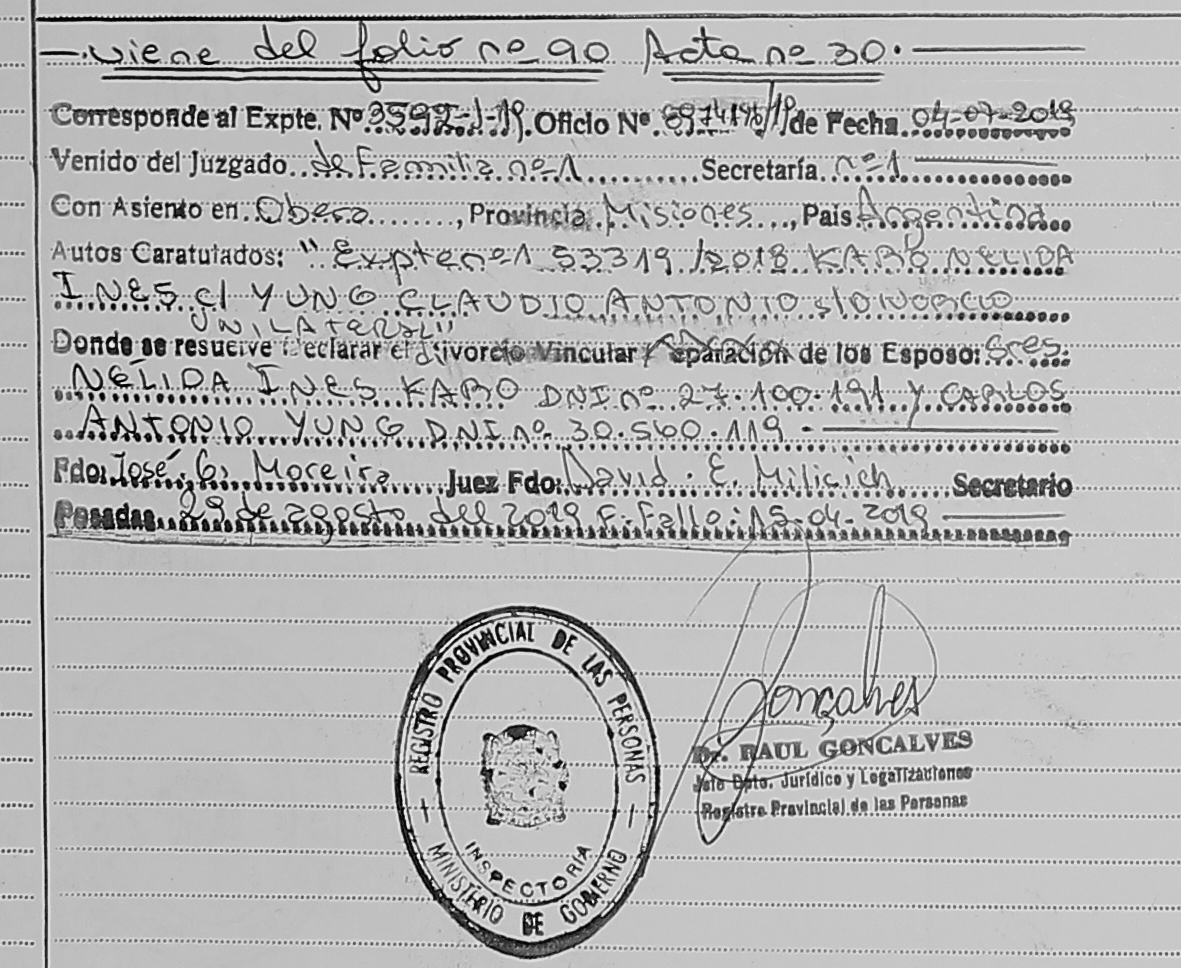 viene del folio nº 90 Acta nº 30.
Corresponde al Expte. Nº 3592-J-19. Oficio Nº /19 de Fecha 04-07-2019
Venido del Juzgado de Familia nº 1 Secretaría nº 1
Con Asiento en Obera, Provincia Misiones, País Argentina
Autos Caratulados: "Expte nº 153319/2018 KABO NELIDA
INES c/ YUNG CLAUDIO ANTONIO s/DIVORCIO
UNILATERAL"
Donde se resuelve Declarar el divorcio Vincular / Separación de los Esposo: Sres:
NÉLIDA INES KABO DNI nº 27.100.191 Y CARLOS
ANTONIO YUNG DNI nº 30.560.119.
Fdo: José, G, Moreira Juez Fdo: David. E. Milicich Secretario
Posadas 29 de agosto del 2019 F. Fallo: 15-04-2019
REGISTRO PROVINCIAL DE LAS PERSONAS
INSPECTORIA
MINISTERIO DE GOBIERNO
Goncalves
Dr. RAUL GONCALVES
Jefe Dpto. Jurídico y Legalizaciones
Registro Provincial de las Personas